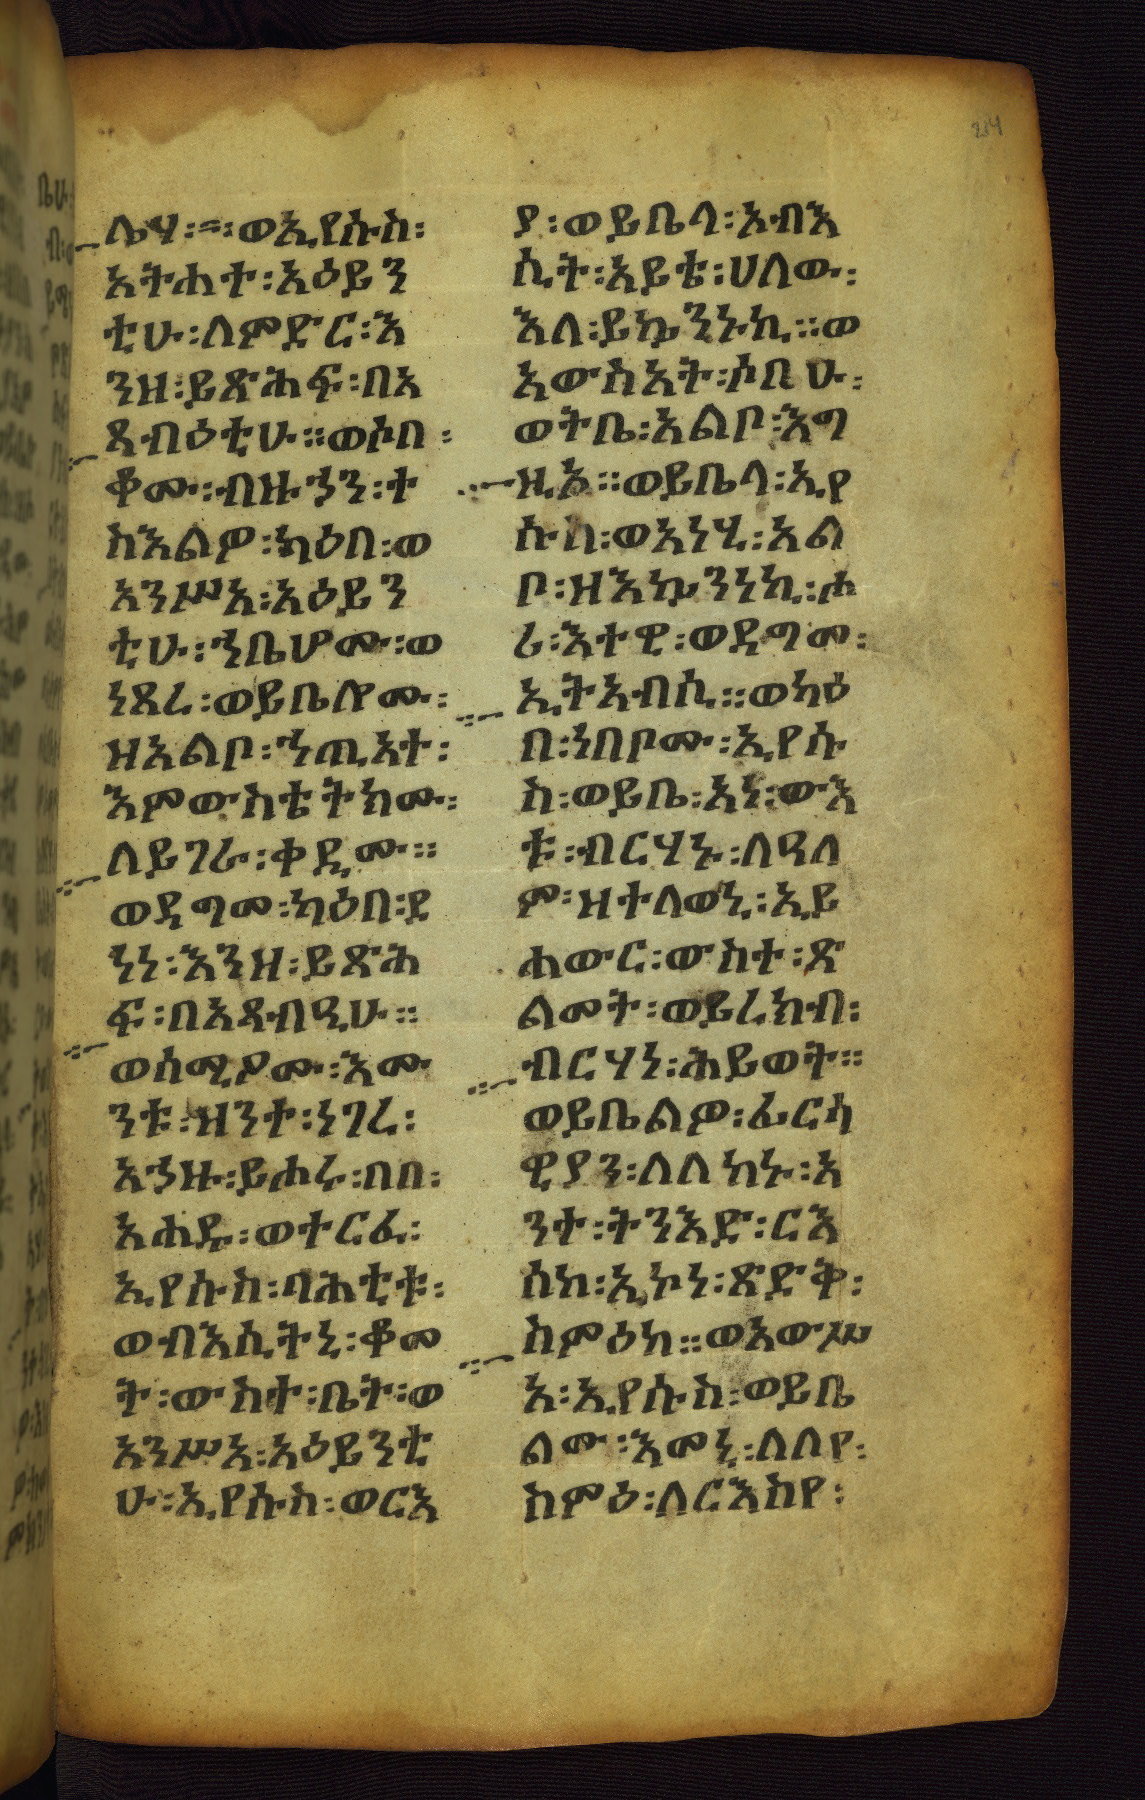 ሌሃ፡=፡ወኢየሱስ፡
አትሐተ፡አዕይን
ቲሁ፡ለምድር፡እ
ንዘ፡ይጽሕፍ፡በአ
ጻብዕቲሁ።ወሶበ፡
ቆሙ፡ብዙኃን፡ተ
ስእልዎ፡ካዕበ፡ወ
አንሥአ፡አዕይን
ቲሁ፡ኀቤሆሙ፡ወ
ነጸረ፡ወይቤሎሙ፡
ዘአልቦ፡ኀጢአተ፡
እምውስቴትክሙ፡
ለይገራ፡ቀዲሙ።
ወደግመ፡ካዕበ፡ደ
ነነ፡እንዘ፡ይጽሕ
ፍ፡በአጻብዒሁ።
ወሰሚዖሙ፡እሙ
ንቱ፡ዝንተ፡ነገረ፡
አኃዙ፡ይሐሩ፡በበ፡
አሐዱ፡ወተርፈ፡
ኢየሱስ፡ባሕቲቱ፡
ወብእሲትኒ፡ቆመ
ት፡ውስተ፡ቤት፡ወ
አንሥአ፡አዕይንቲ
ሁ፡ኢየሱስ፡ወርእ
ያ፡ወይቤላ፡አብእ
ሲት፡አይቴ፡ሀለው፡
እለ፡ይኴንኑኪ።ወ
አውስአት፡ሶቤሁ፡
ወትቤ፡አልቦ፡እግ
ዚኦ።ወይቤላ፡ኢየ
ሱስ፡ወአነሂ፡አል
ቦ፡ዘእኴንነኪ፡ሖ
ሪ፡እተዊ፡ወዳግመ፡
ኢትአብሲ።ወካዕ
በ፡ነበቦሙ፡ኢየሱ
ስ፡ወይቤ፡አነ፡ውእ
ቱ፡ብርሃኑ፡ለዓለ
ም፡ዘተለወኒ፡ኢይ
ሐውር፡ውስተ፡ጽ
ልመት፡ወይረክብ፡
ብርሃነ፡ሕይወት።
ወይቤልዎ፡ፈርሳ
ዊያን፡ለለከኑ፡አ
ንተ፡ትንእድ፡ርእ
ሰከ፡ኢኮነ፡ጽድቅ፡
ስምዕከ።ወአውሥ
አ፡ኢየሱስ፡ወይቤ
ልሙ፡እመኒ፡ለለየ፡
ስምዕ፡ለርእስየ፡